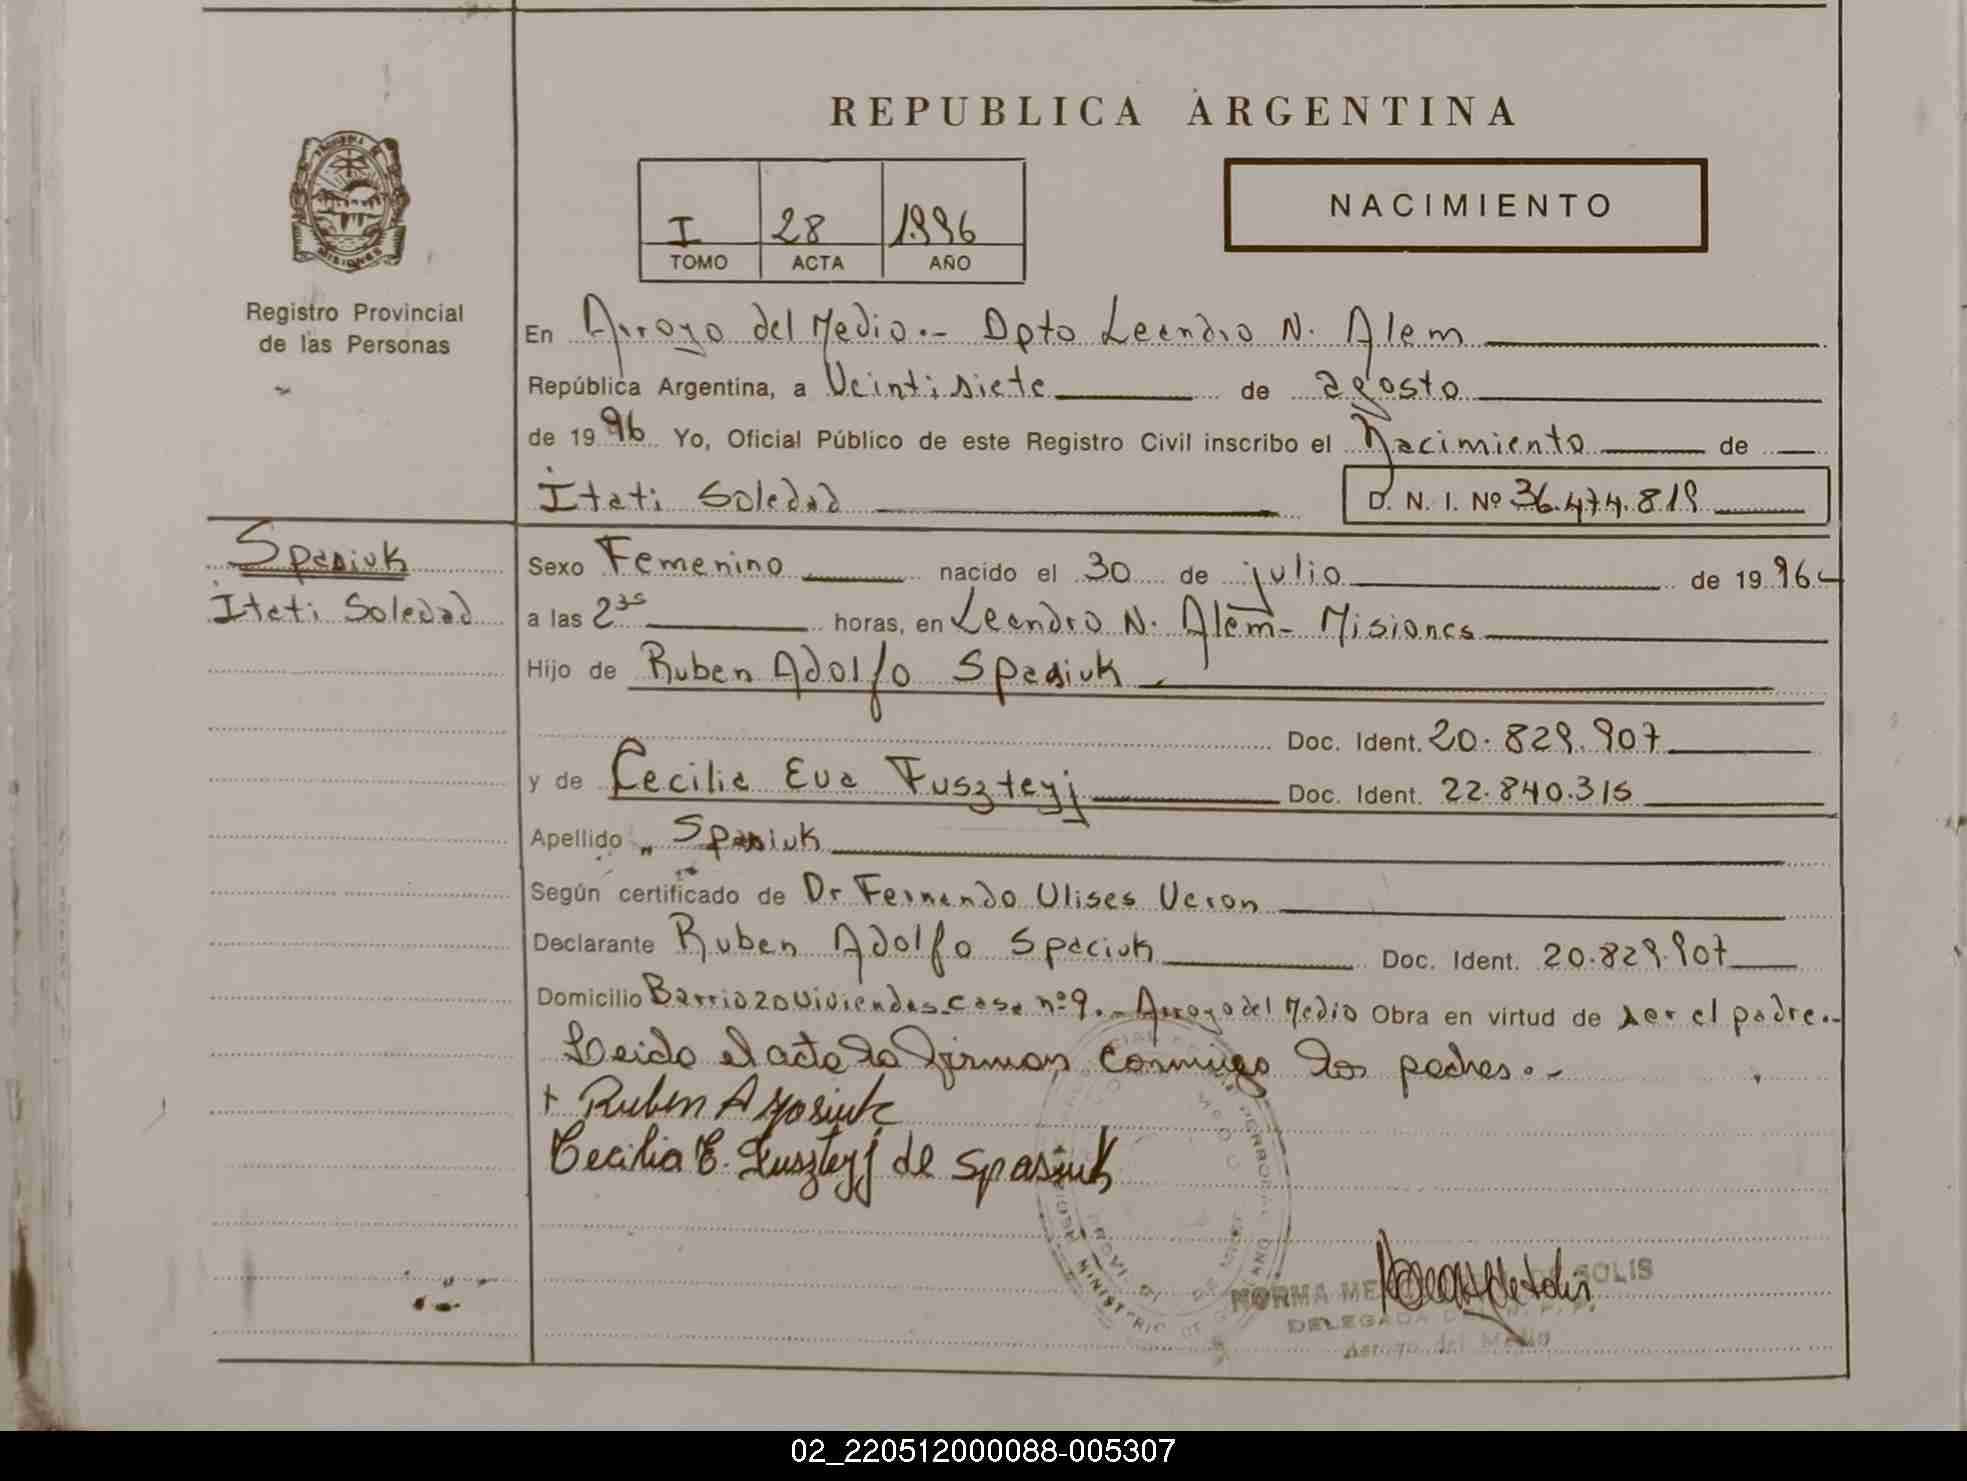 REPUBLICA ARGENTINA
I 28 1996
TOMO ACTA AÑO
NACIMIENTO
Registro Provincial
de las Personas
En Arroyo del Medio.- Dpto Leandro N. Alem
República Argentina, a Veintisiete de agosto
de 1996 Yo, Oficial Público de este Registro Civil inscribo el Nacimiento de
Itati Soledad D. N. I. Nº 36.474.819
Spasiuk
Itati Soledad
Sexo Femenino nacido el 30 de julio de 1996
a las 2 horas, en Leandro N. Alem - Misiones
Hijo de Ruben Adolfo Spasiuk
Doc. Ident. 20.829.907
y de Cecilia Eva Fuszteyj Doc. Ident. 22.840.315
Apellido Spasiuk
Según certificado de Dr Fernando Ulises Veron
Declarante Ruben Adolfo Spaciuk Doc. Ident. 20.829.907
Domicilio Barrio 20 viviendas casa nº 9.- Arroyo del Medio Obra en virtud de ser el padre.-
Leido el acta la firman conmigo los padres.-
+ Ruben A Spasiuk
Cecilia E. Fuszteyj de Spasiuk
NORMA DE SOLIS
DELEGADA
Arroyo del Medio
02_220512000088-005307